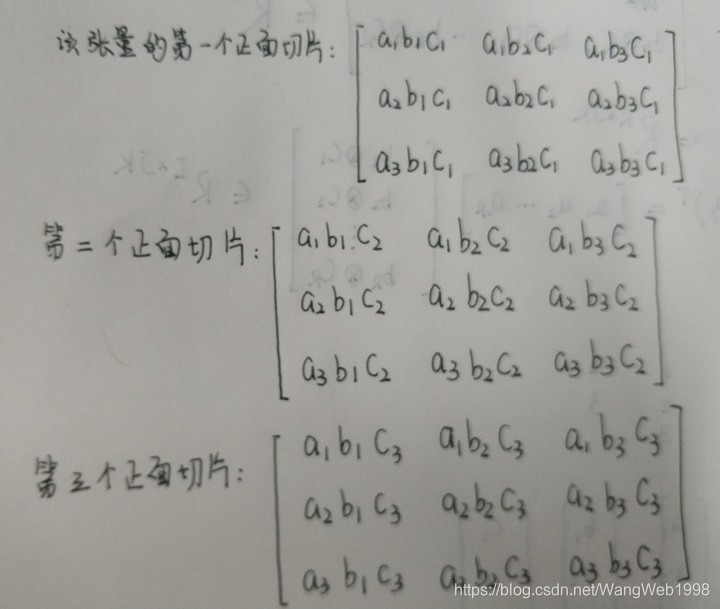 a₁b₁c₁ a₁b₂c₁ a₁b₃c₁
该张量的第一个正面切片:
a₂b₁c₁ a₂b₂c₁ a₂b₃c₁
a₃b₁c₁ a₃b₂c₁ a₃b₃c₁
第二个正面切片: a₁b₁c₂ a₁b₂c₂ a₁b₃c₂
a₂b₁c₂ a₂b₂c₂ a₂b₃c₂
a₃b₁c₂ a₃b₂c₂ a₃b₃c₂
a₁b₁c₃ a₁b₂c₃ a₁b₃c₃
第三个正面切片:
a₂b₁c₃ a₂b₂c₃ a₂b₃c₃
a₃b₁c₃ a₃b₂c₃ a₃b₃c₃
https://blog.csdn.net/WangWeb1998